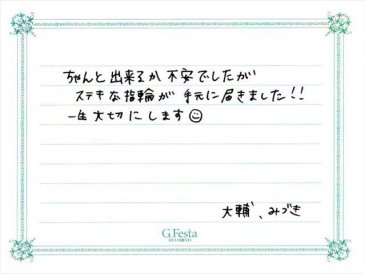 ちゃんと出来るか不安でしたが
ステキな指輪が手元に届きました!!
一生大切にします☺
大輔、みづき
G.Festa